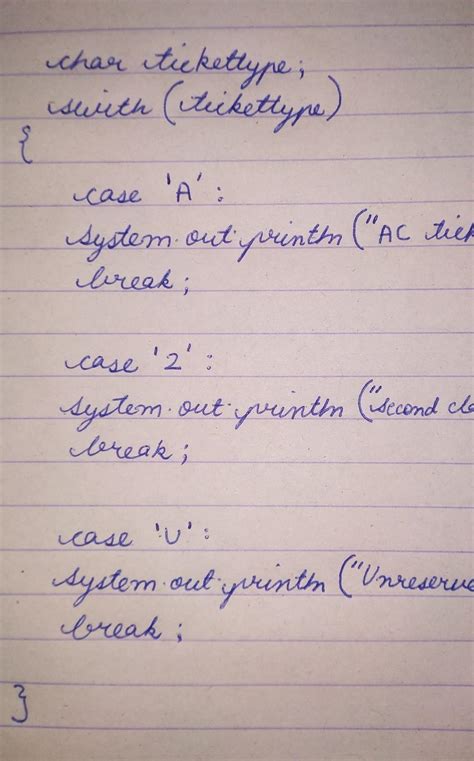 char tickettype;
swith (tickettype)
{
case 'A':
system.out.println ("AC tick
break;
case '2':
system.out.println ("second cla
break;
case 'U':
system.out.println ("Unreserve
break;
}